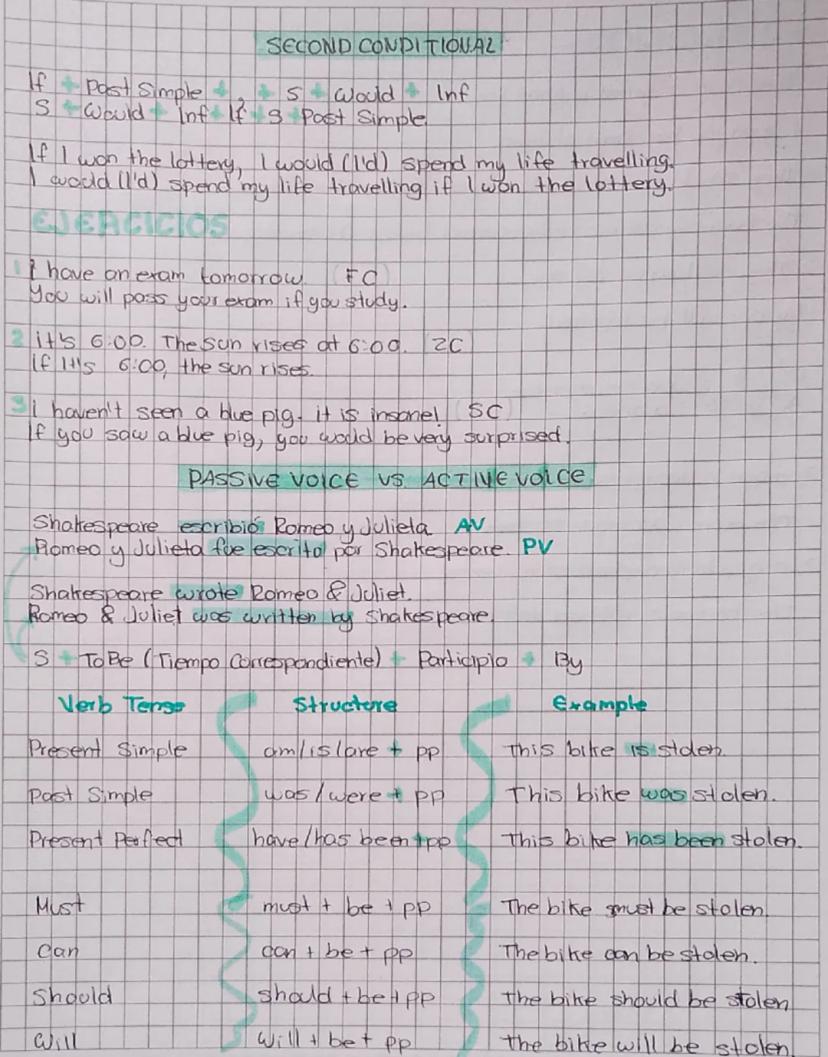 SECOND CONDITIONAL
If + Past Simple + , + S + Would + Inf
S + Would + Inf + If + S + Past Simple
If I won the lottery, I would (I'd) spend my life travelling.
I would (I'd) spend my life travelling if I won the lottery.
EJERCICIOS
1 I have an exam tomorrow (FC)
You will pass your exam if you study.
2 it's 6:00. The sun rises at 6:00. (ZC)
If it's 6:00, the sun rises.
3 i haven't seen a blue pig. it is insane! (SC)
If you saw a blue pig, you would be very surprised.
PASSIVE VOICE VS ACTIVE VOICE
Shakespeare escribió Romeo y Julieta AV
Romeo y Julieta fue escrito por Shakespeare. PV
Shakespeare wrote Romeo & Juliet.
Romeo & Juliet was written by Shakespeare.
S + To Be (Tiempo Correspondiente) + Participio + By
Verb Tense Structure Example
Present Simple am/is/are + pp This bike is stolen.
Past Simple was/were + pp This bike was stolen.
Present Perfect have/has been + pp This bike has been stolen.
Must must + be + pp The bike must be stolen.
Can can + be + pp The bike can be stolen.
Should should + be + pp The bike should be stolen
Will will + be + pp The bike will be stolen